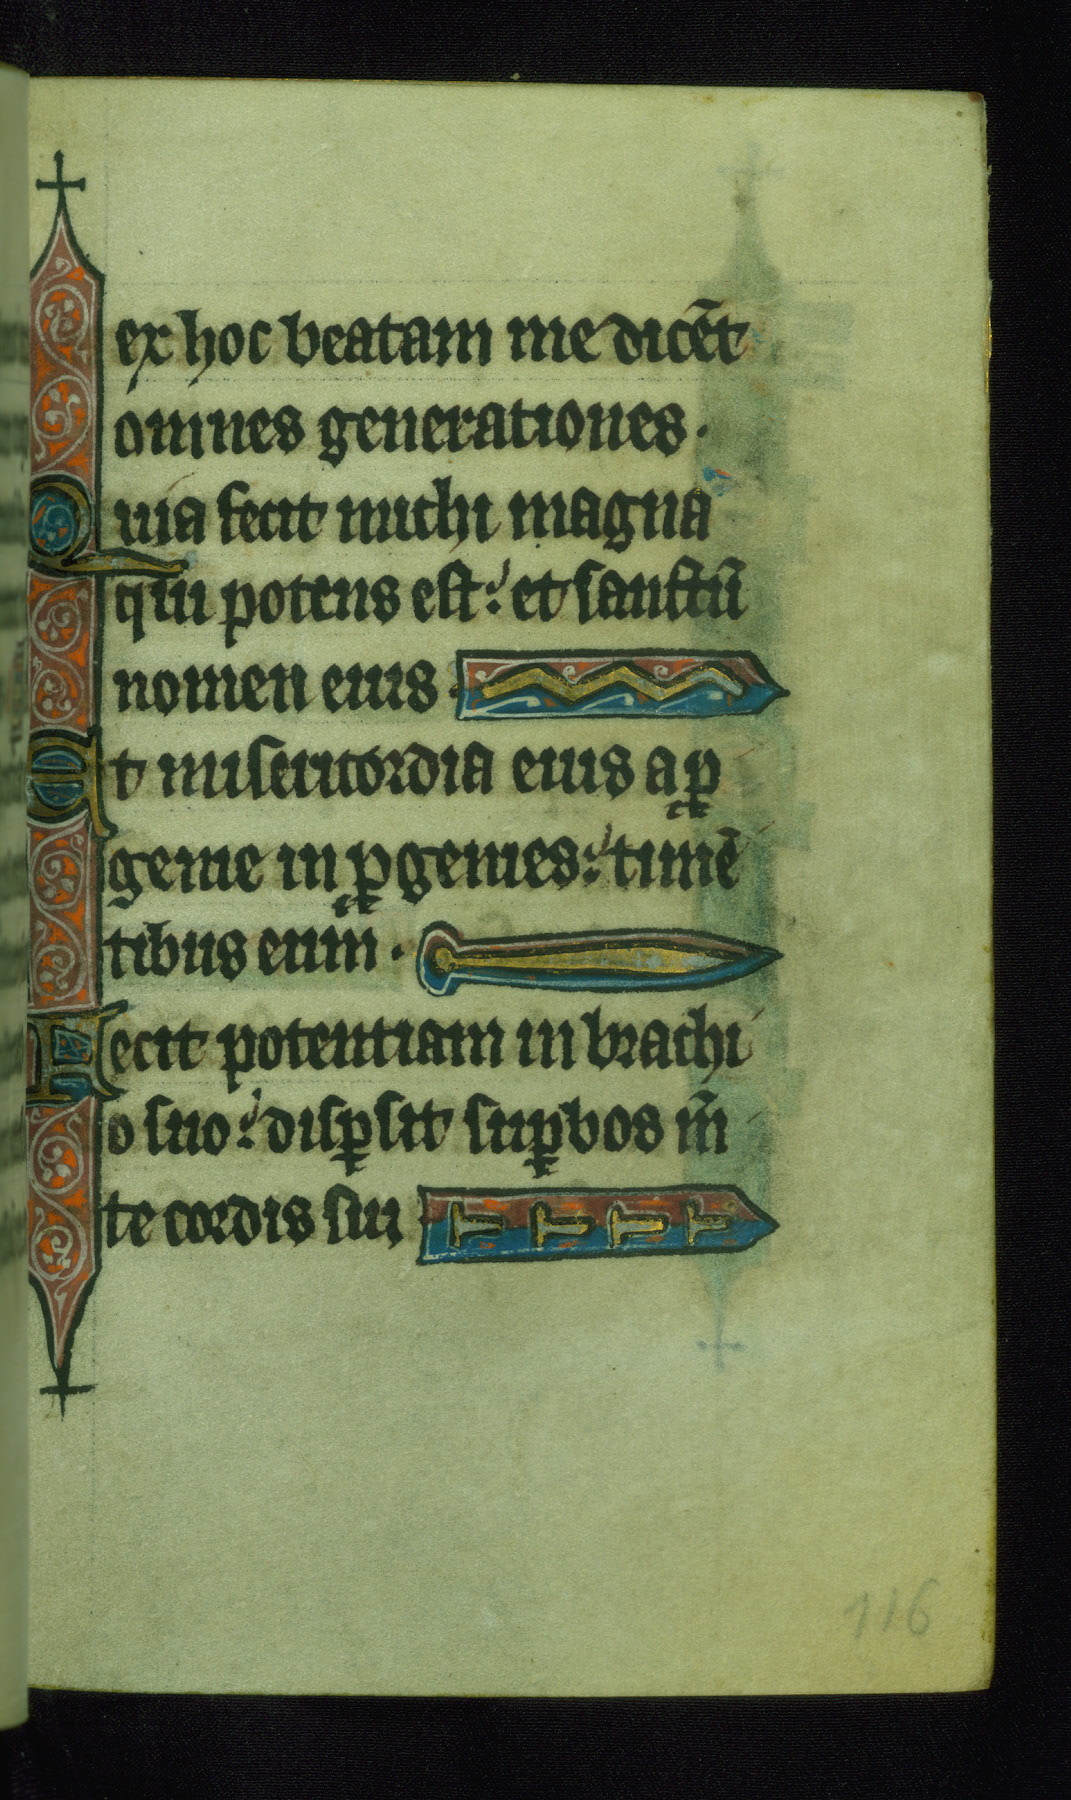 ex hoc beatam me dicēt
omnes generationes·
Quia fecit michi magna
qui potens est: et sanctū
nomen eius·
Et misericordia eius a ꝓ
genie in ꝓgenies: timē
tibus eum·
Fecit potentiam in brachi
o suo: disꝑsit suꝑbos m̄
te cordis sui
116